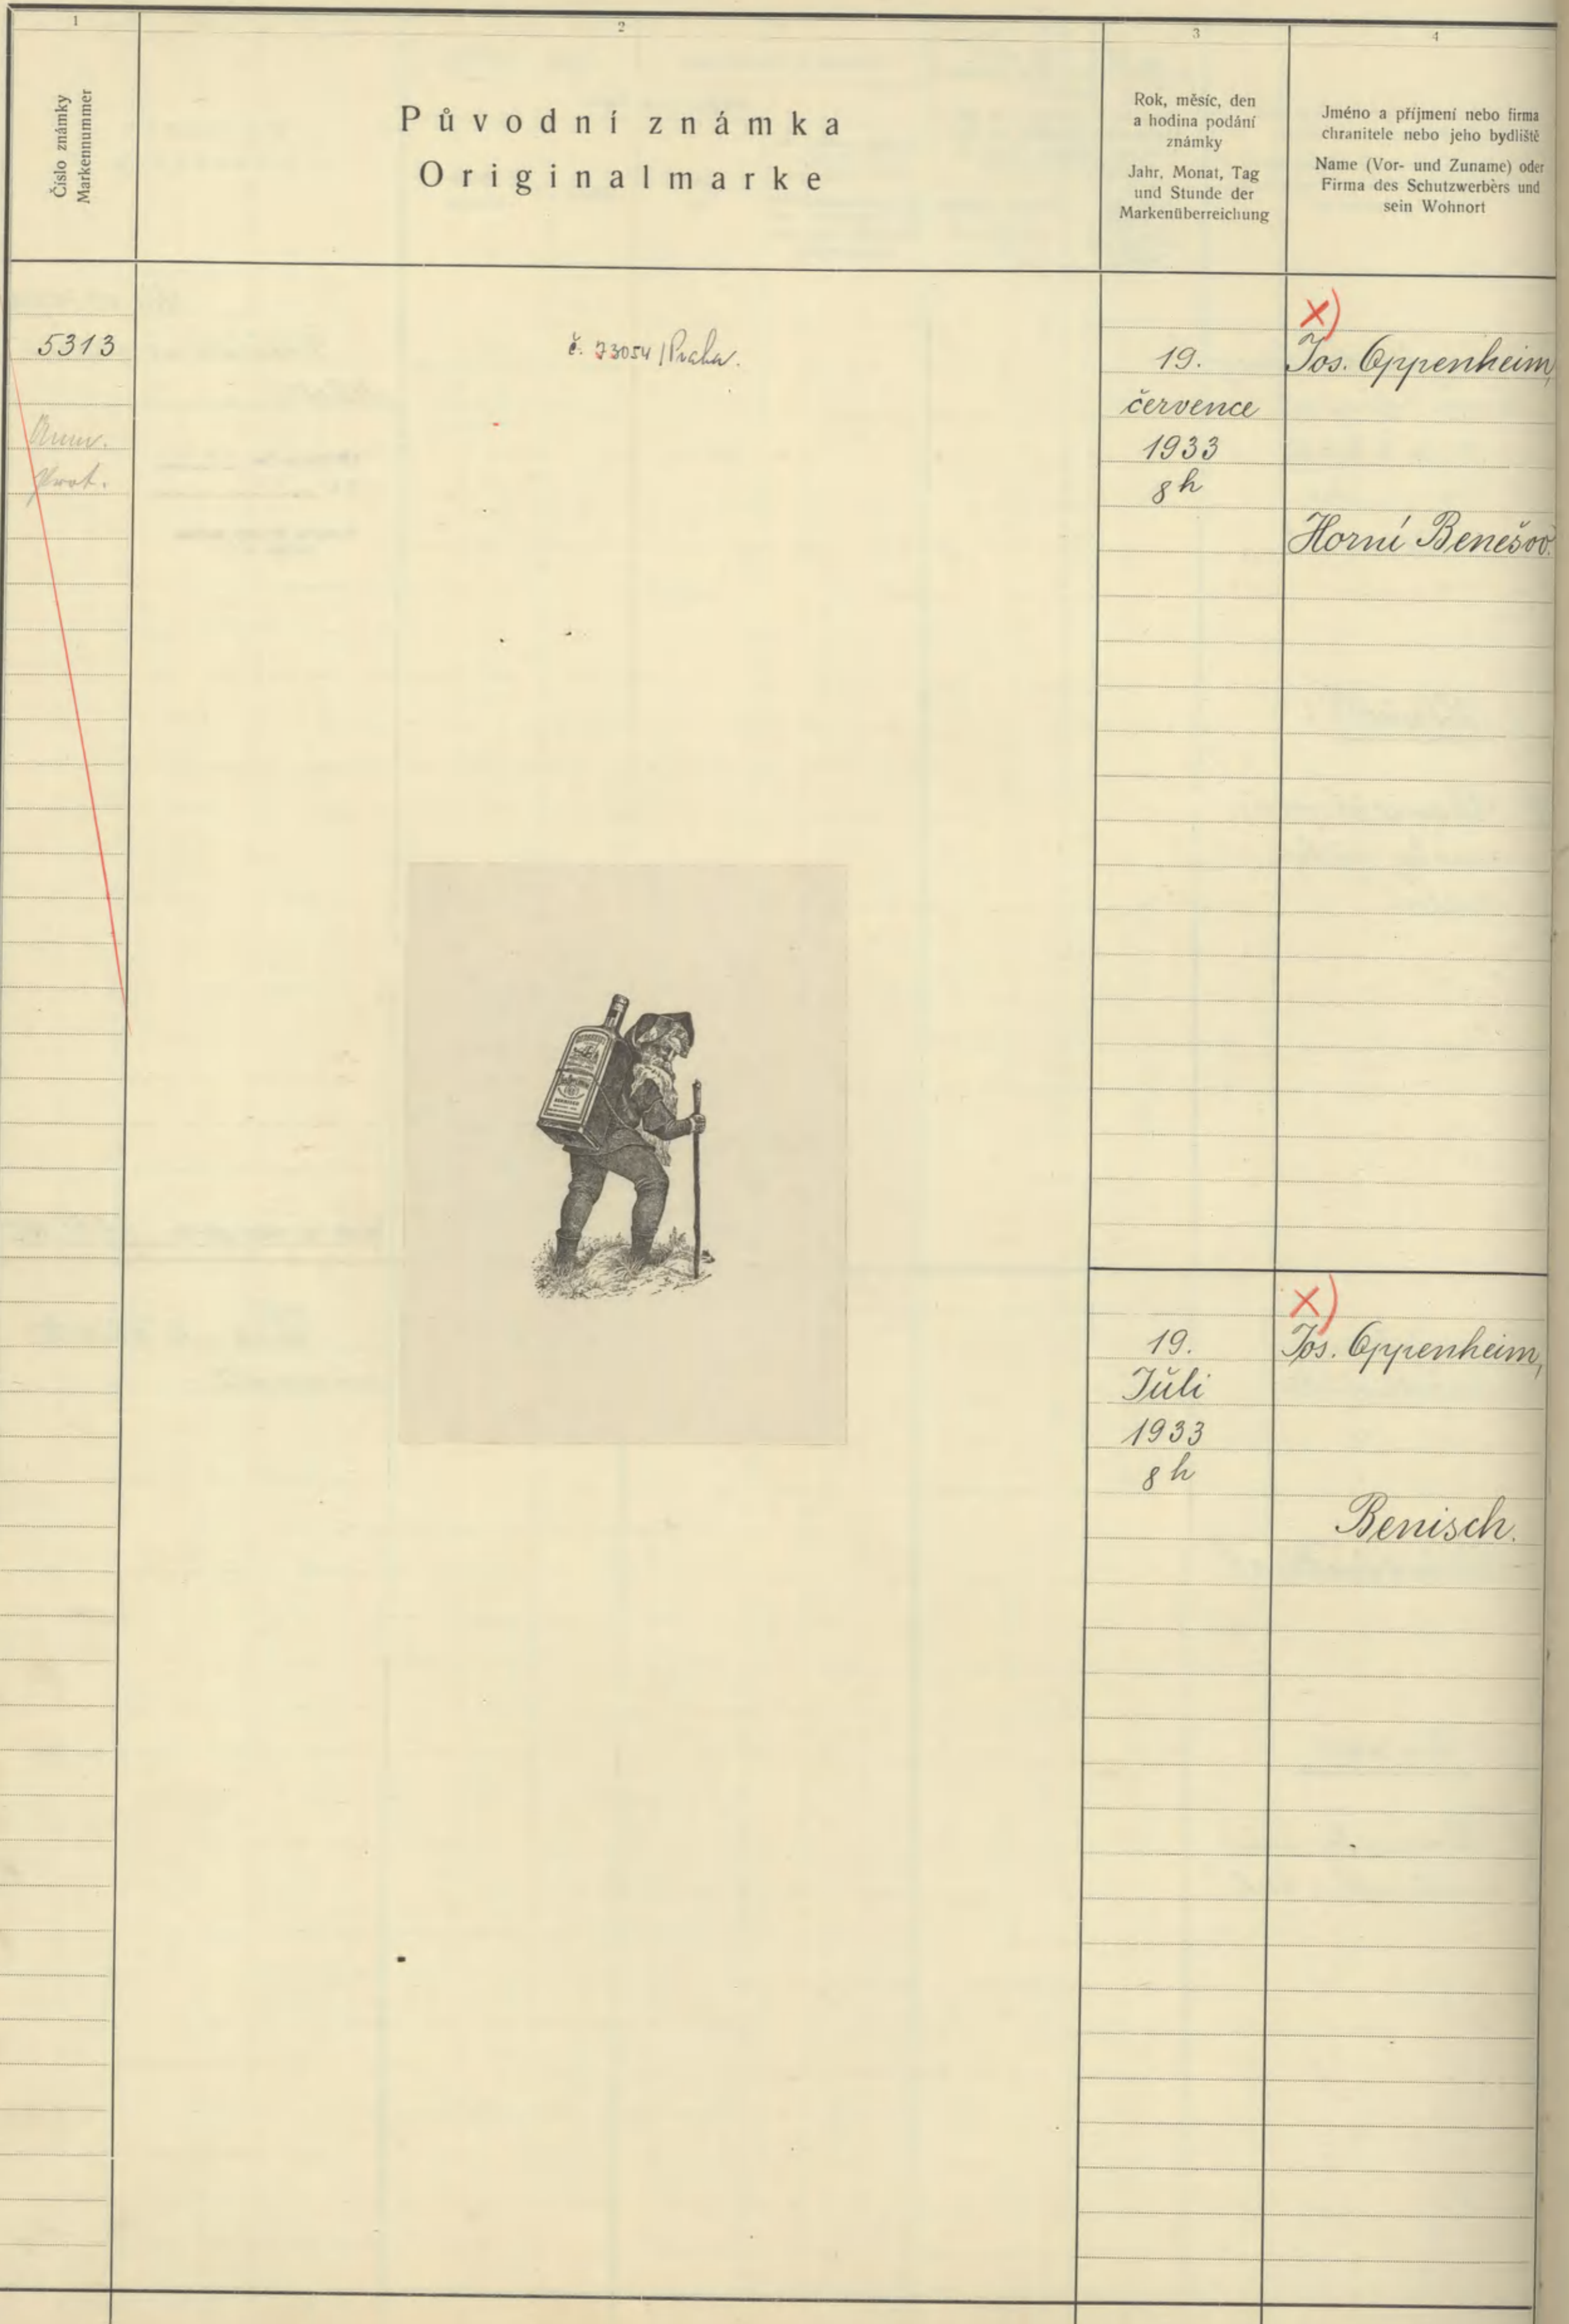 1
2
3
4
Číslo známky
Markennummer
Původní známka
Originalmarke
Rok, měsíc, den
a hodina podání
známky
Jahr, Monat, Tag
und Stunde der
Markenüberreichung
Jméno a příjmení nebo firma
chranitele nebo jeho bydliště
Name (Vor- und Zuname) oder
Firma des Schutzwerbers und
sein Wohnort
5313
Prot.
č. 73054 / Praha.
19.
července
1933
8 h
X)
Jos. Oppenheim,
Horní Benešov.
19.
Juli
1933
8 h
X)
Jos. Oppenheim,
Benisch.